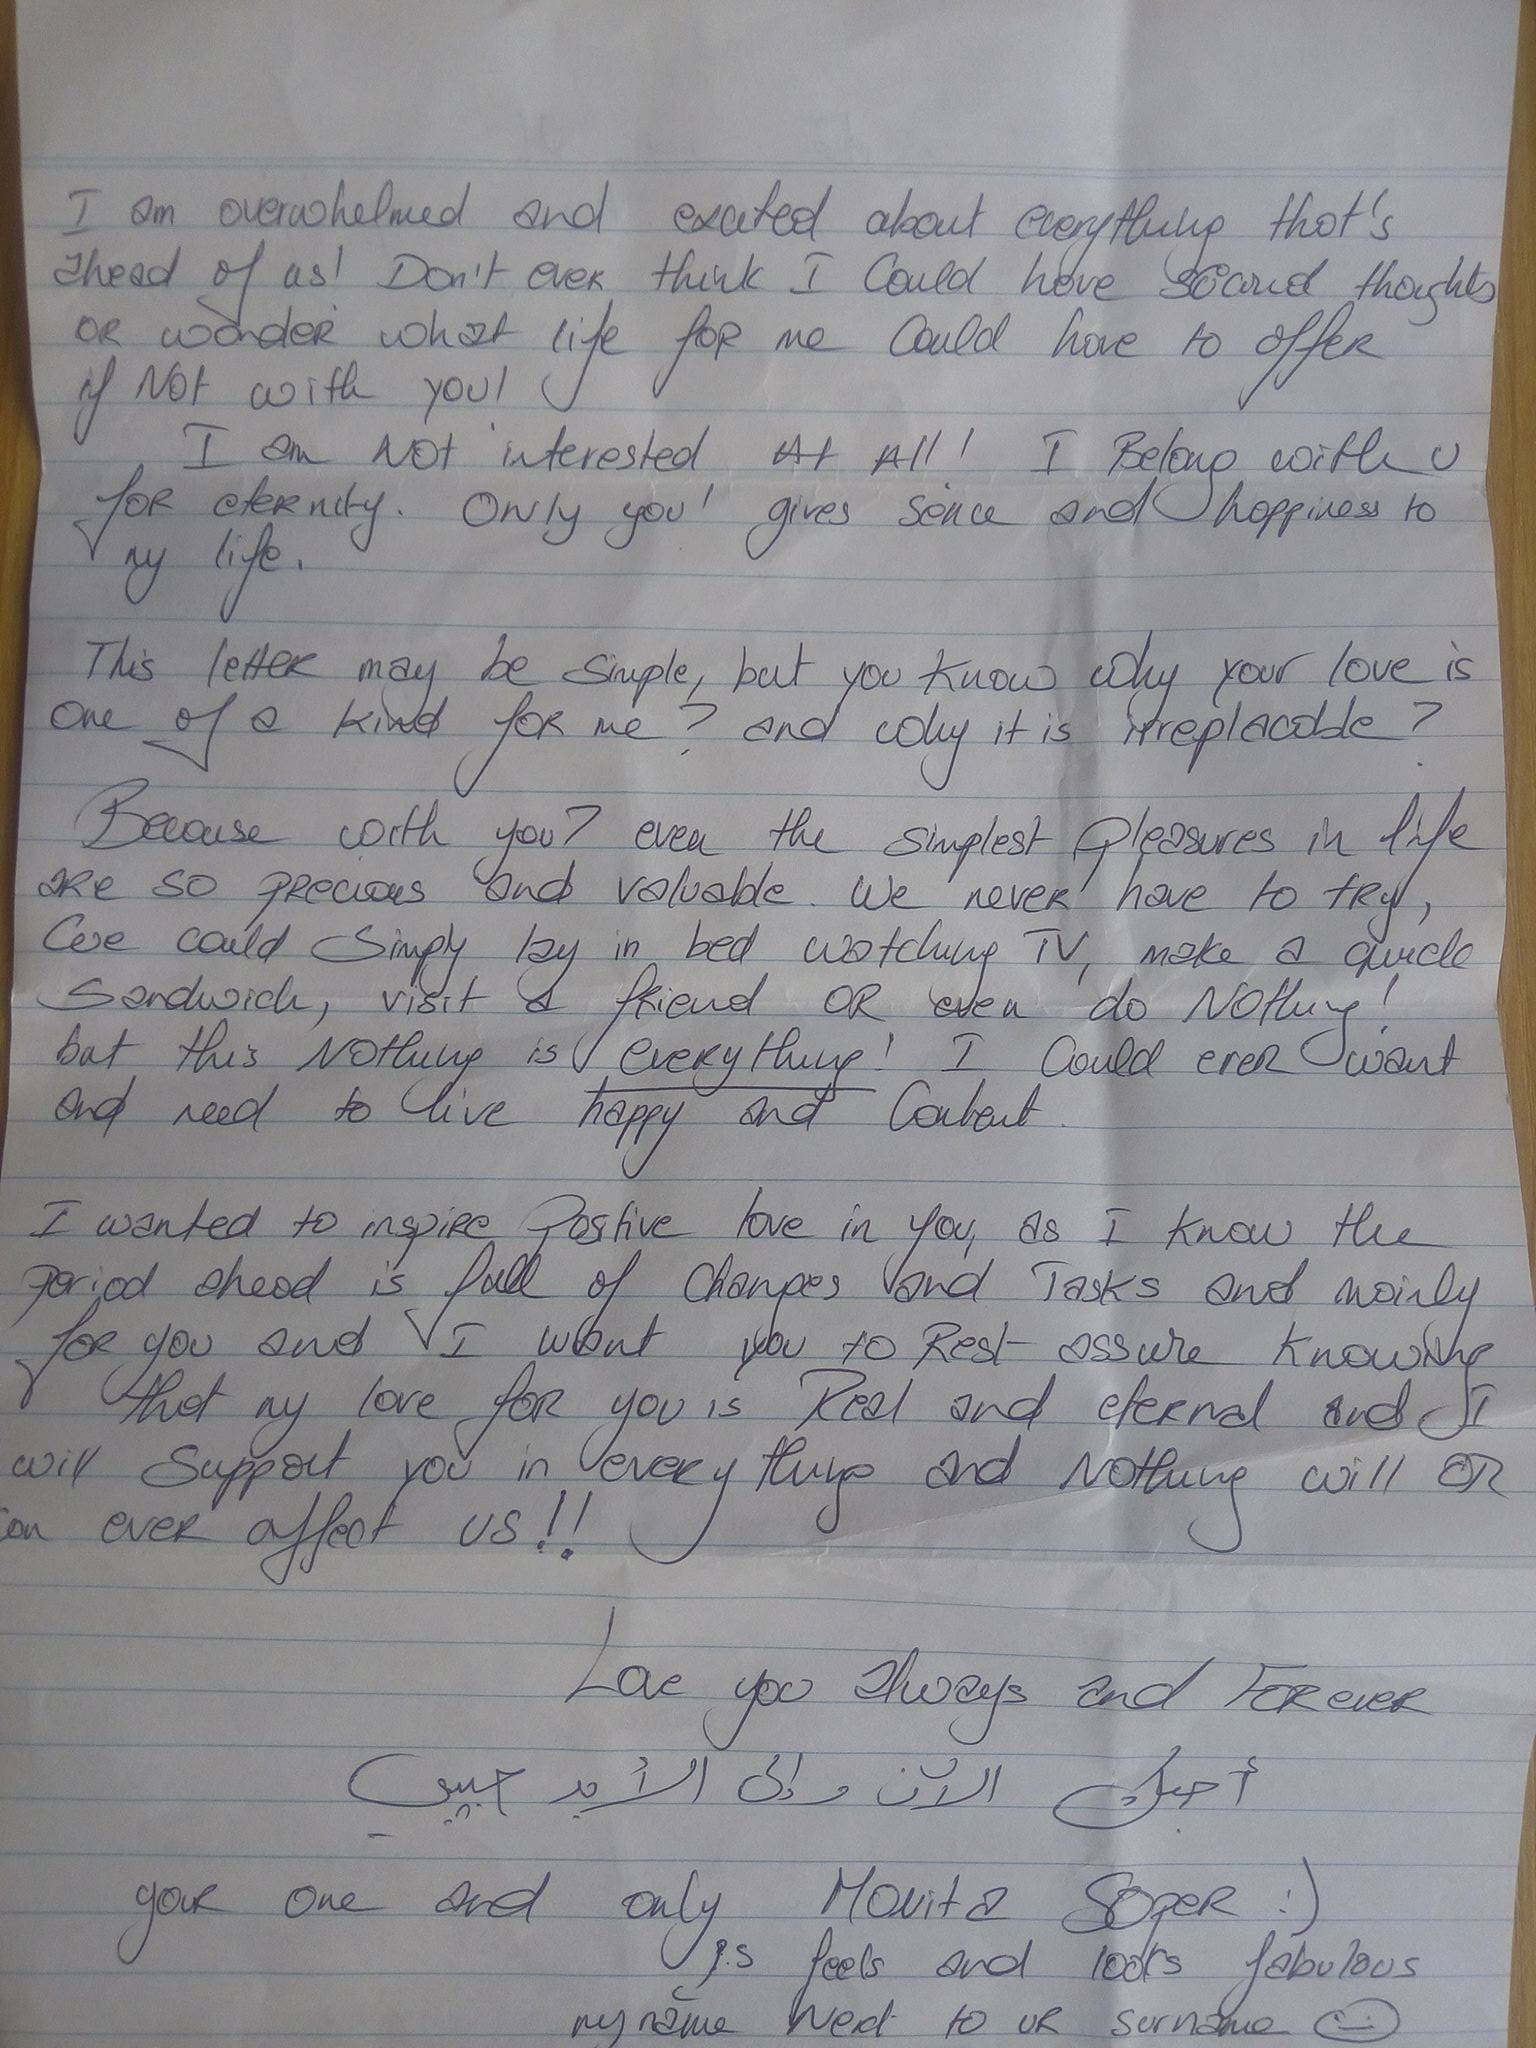 I am overwhelmed and excited about everything that's
ahead of us! Don't ever think I could have second thoughts
OR wonder what life for me could have to offer
if Not with you!
I am Not interested At All! I Belong with U
for eternity. Only you! gives sence and happiness to
my life.
This letter may be simple, but you know why your love is
one of a kind for me? and why it is irreplacable?
Because with you? even the simplest pleasures in life
are so precious and valuable. We never have to try,
We could simply lay in bed watching TV, make a quick
sandwich, visit a friend OR even do Nothing!
but this Nothing is everything! I could ever want
and need to live happy and content.
I wanted to inspire positive love in you, as I know the
period ahead is full of changes and Tasks and mainly
for you and I want you to Rest assure knowing
that my love for you is Real and eternal and I
will support you in everything and Nothing will OR
can ever affect US!!
Love you always and Forever
أحبك الآن وإلى الأبد حبيبي
your one and only Soper :)
P.S feels and looks fabulous
my name Next to UR surname